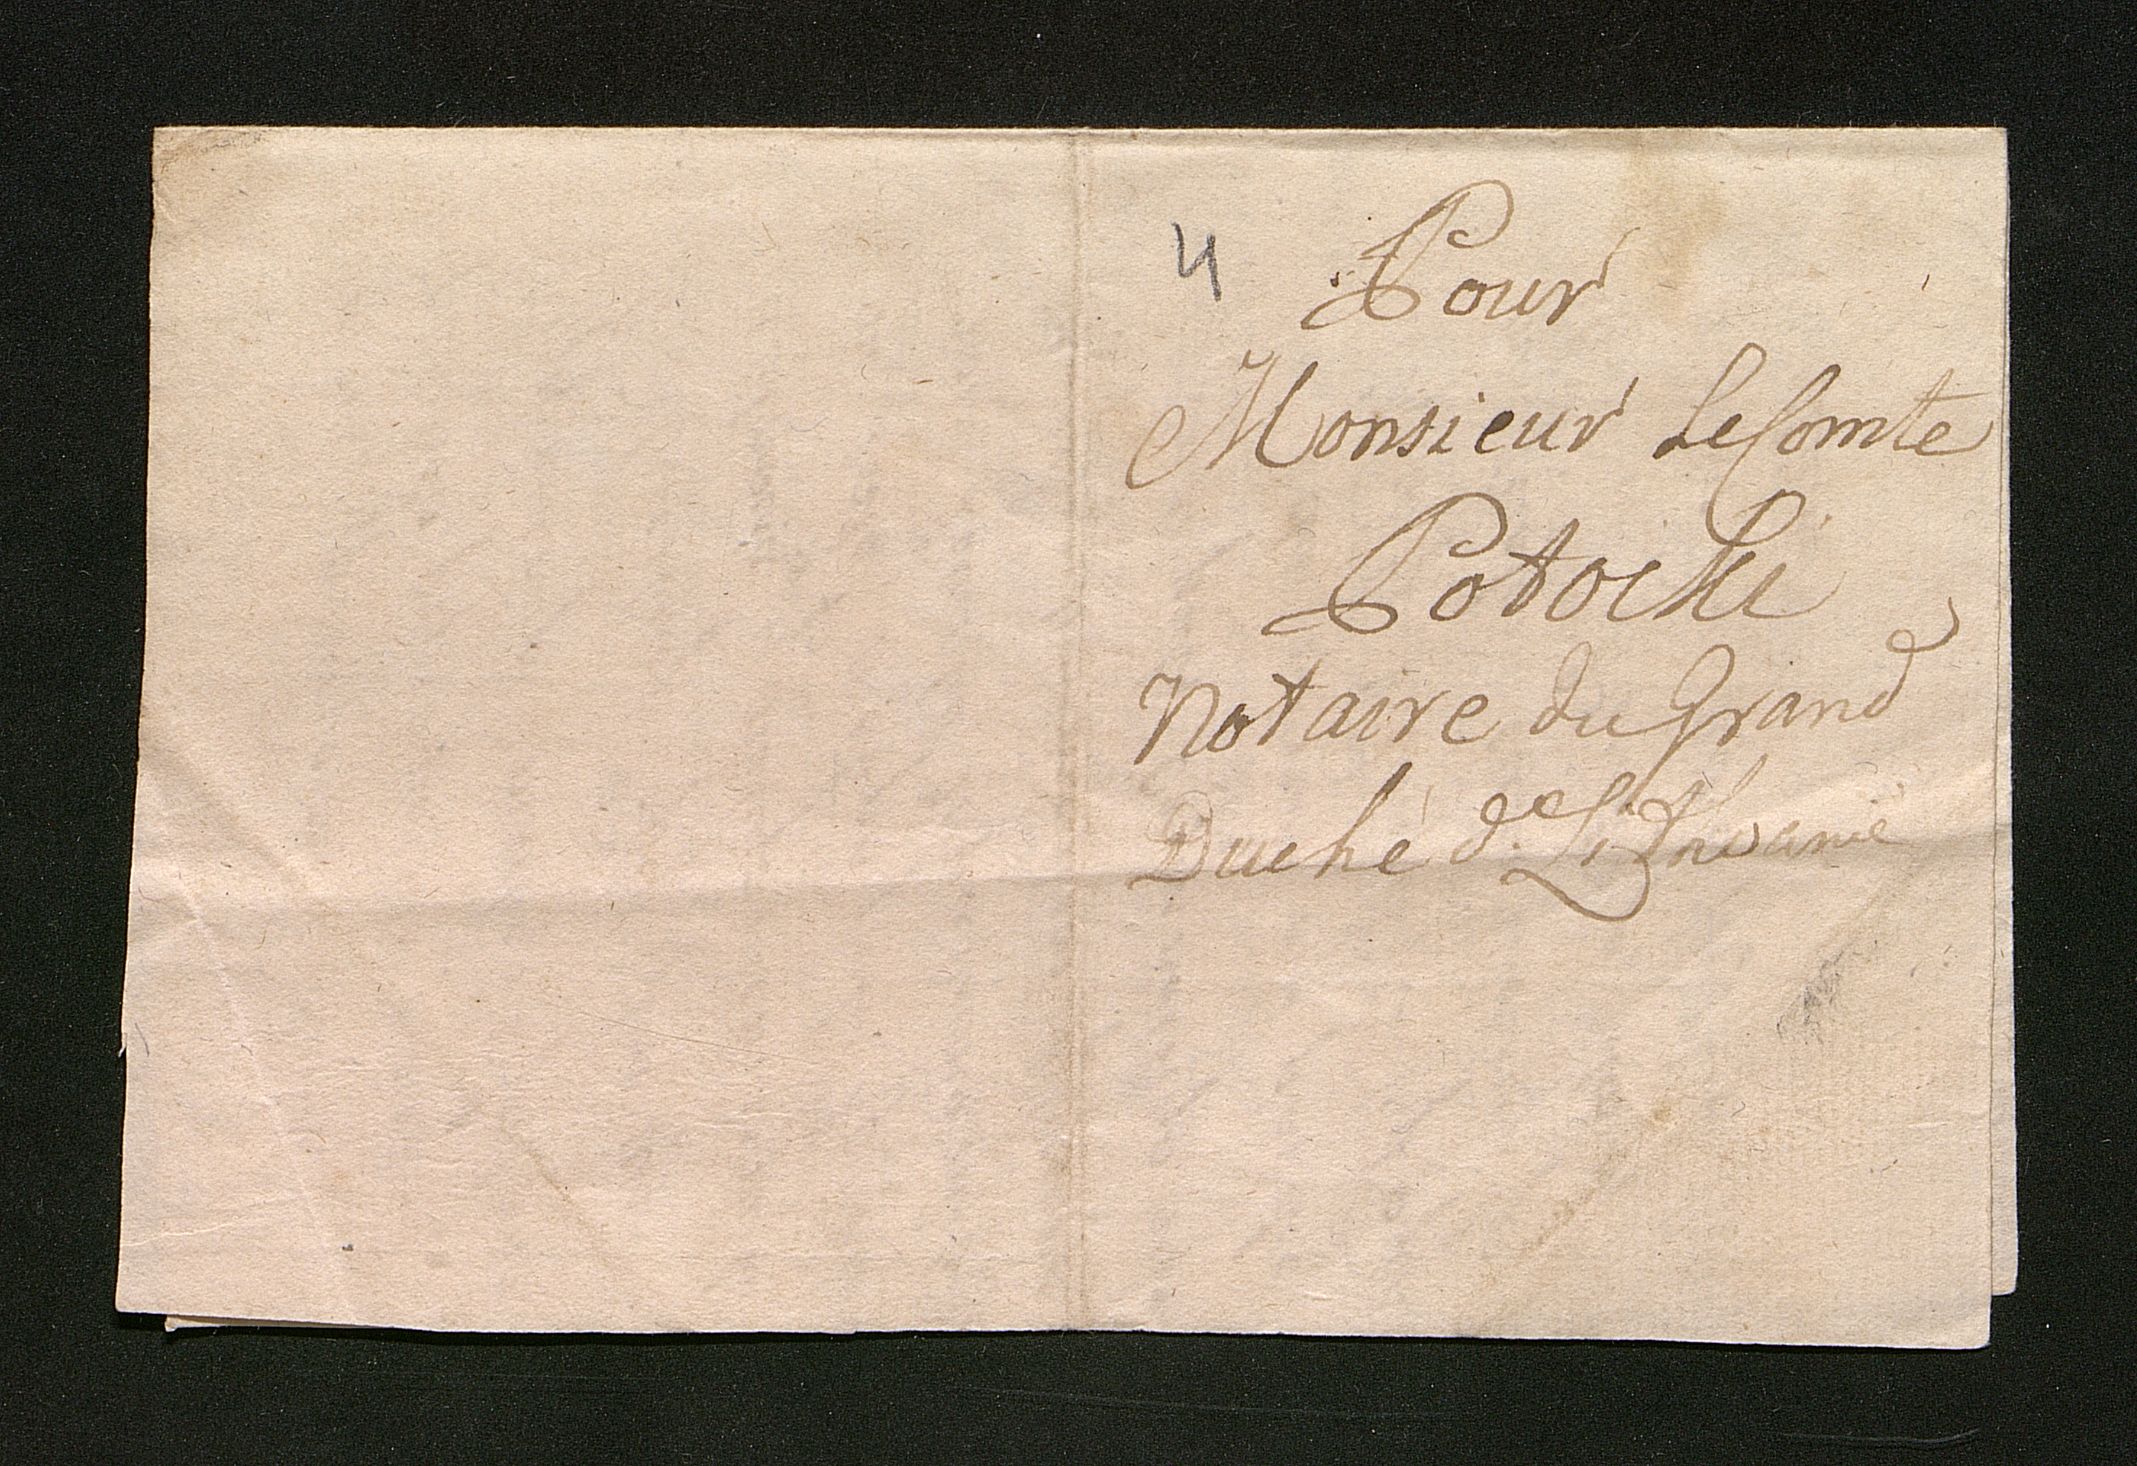 4 Pour
Monsieur Le Comte
Potocki
Notaire du Grand
Duché de Lithvanie